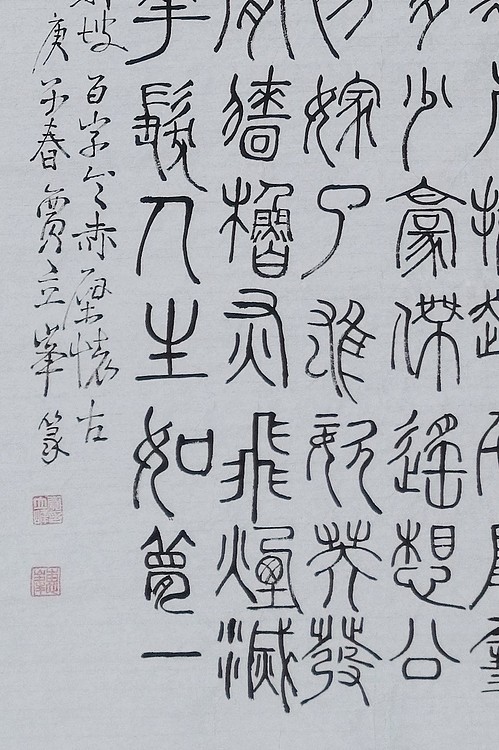 多少豪傑遙想公
初嫁了雄姿英發
檣櫓灰飛煙滅
華髮人生如夢一
坡百字令赤壁懷古
庚午春賈立峯篆